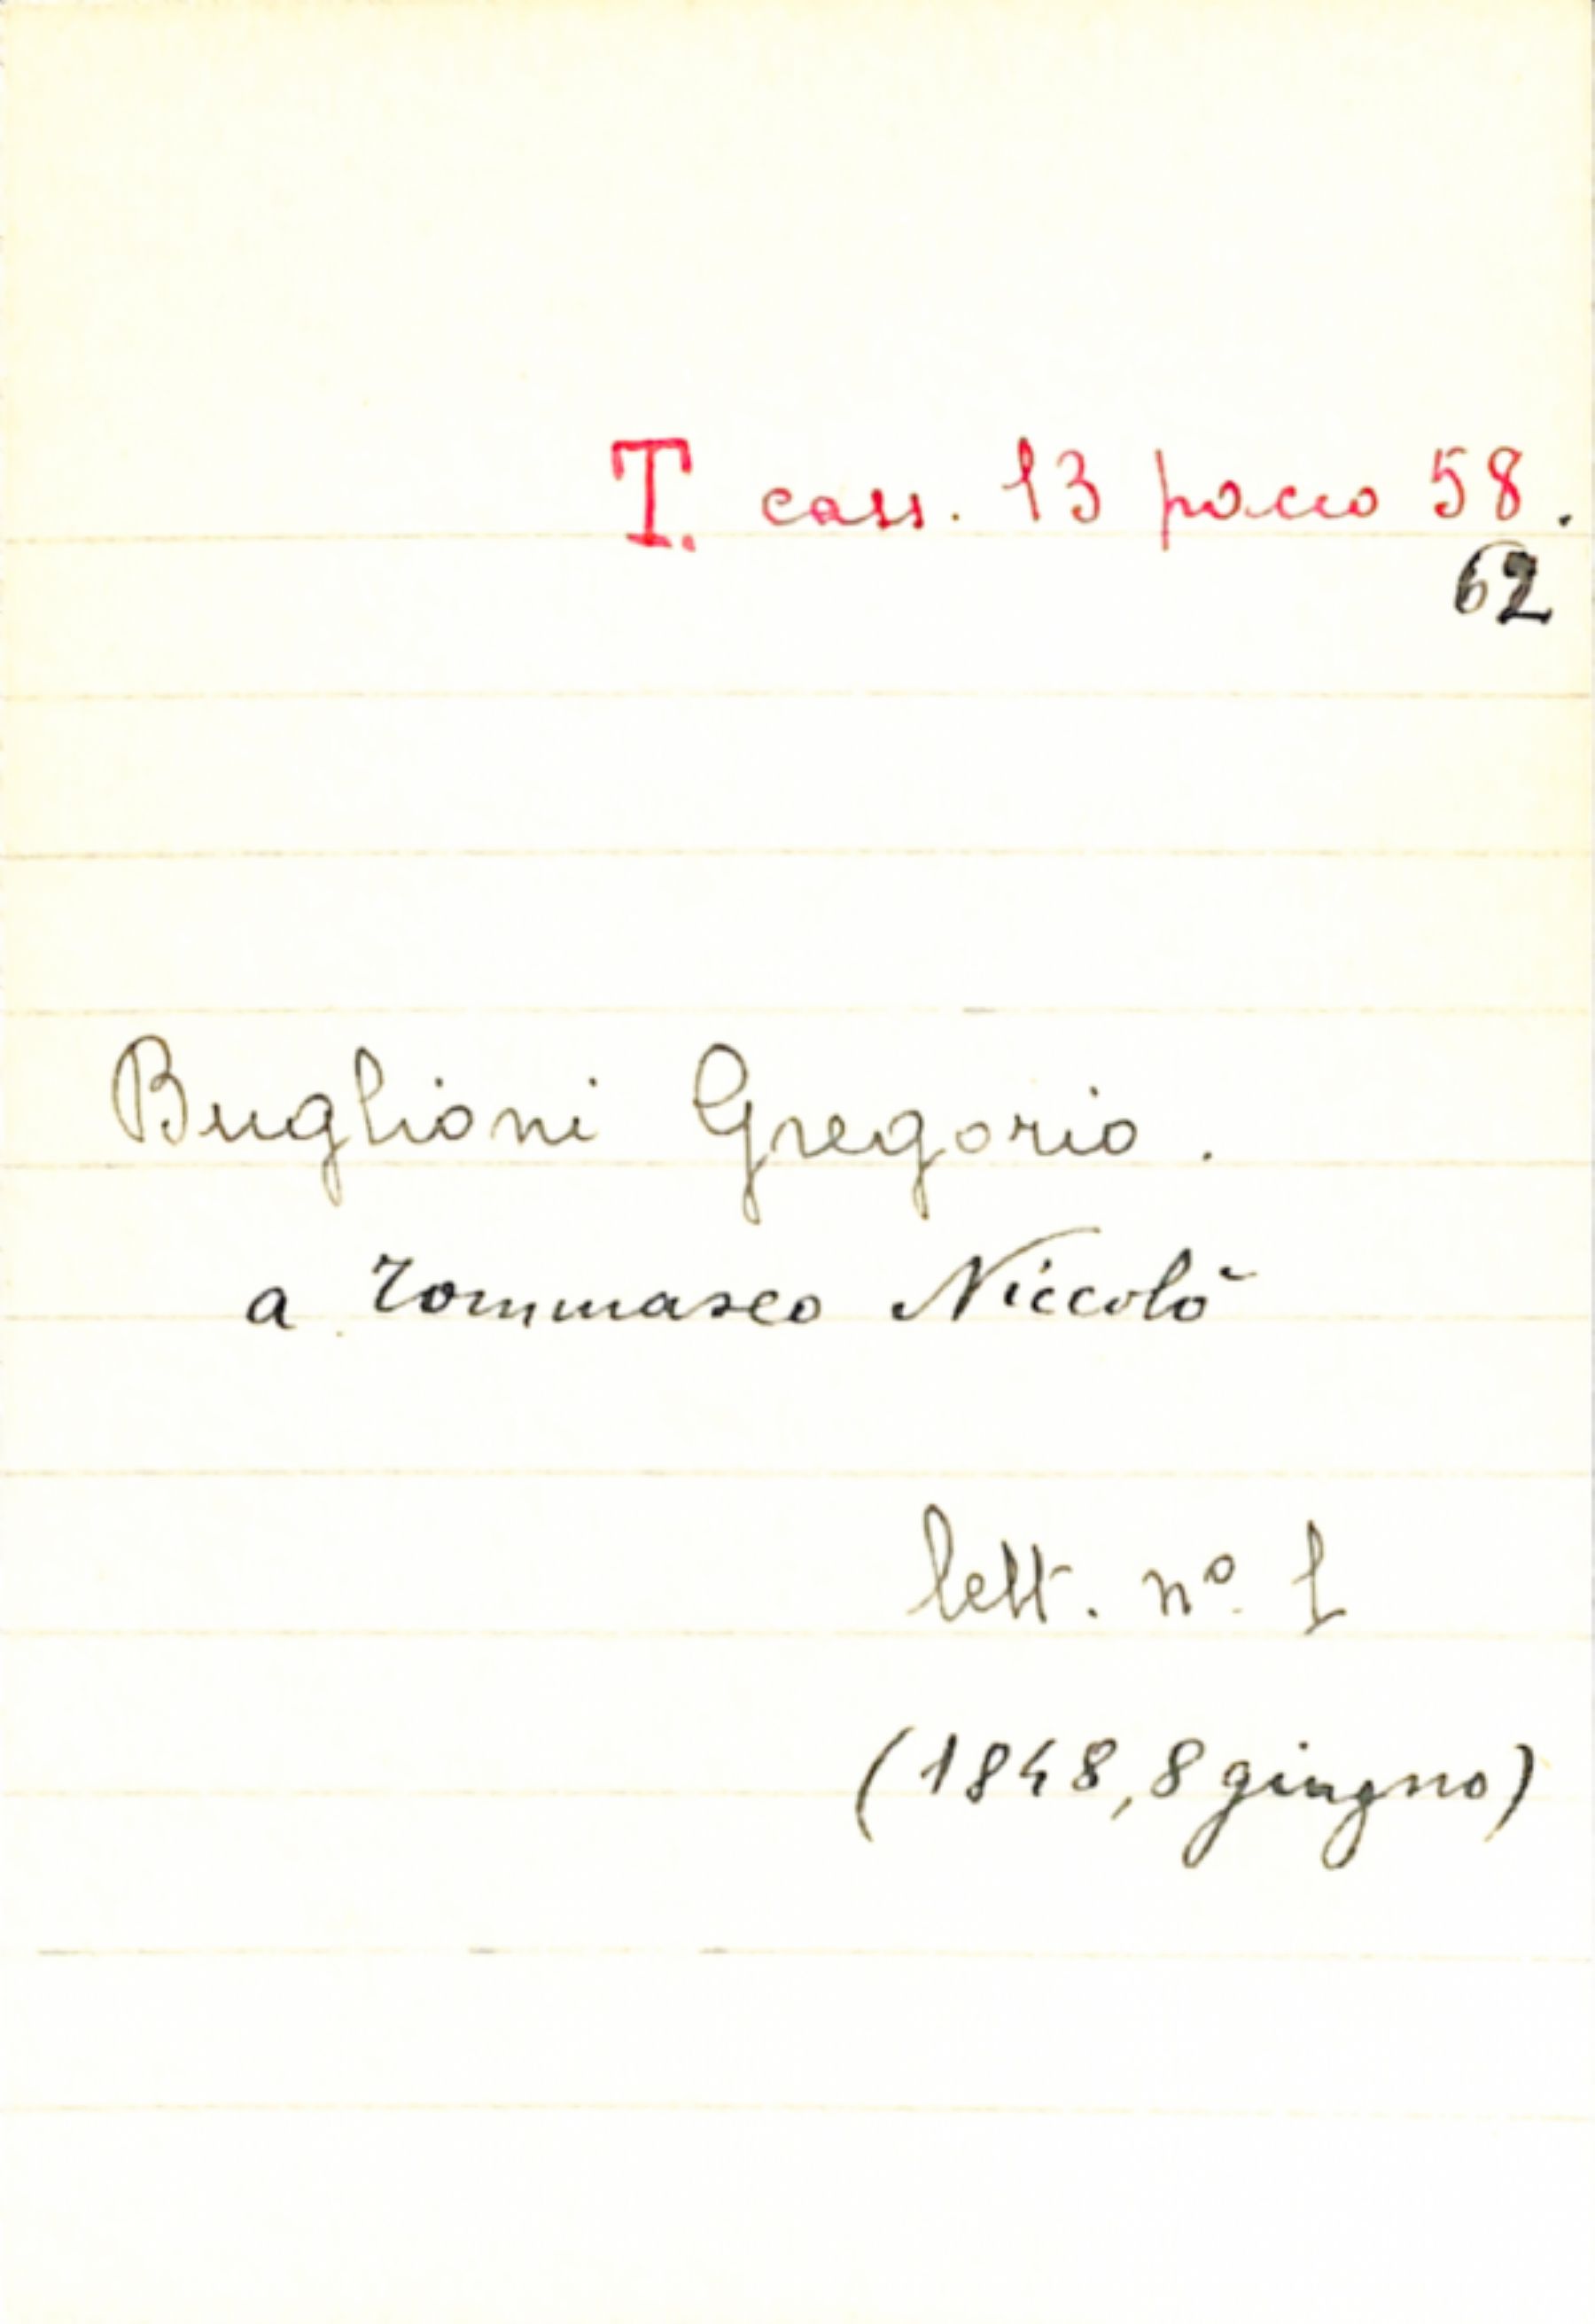 T. cass. 13 pacco 58.
62
Buglioni Gregorio.
a Tommaseo Niccolò
lett. nº 1
(1848, 8 giugno)